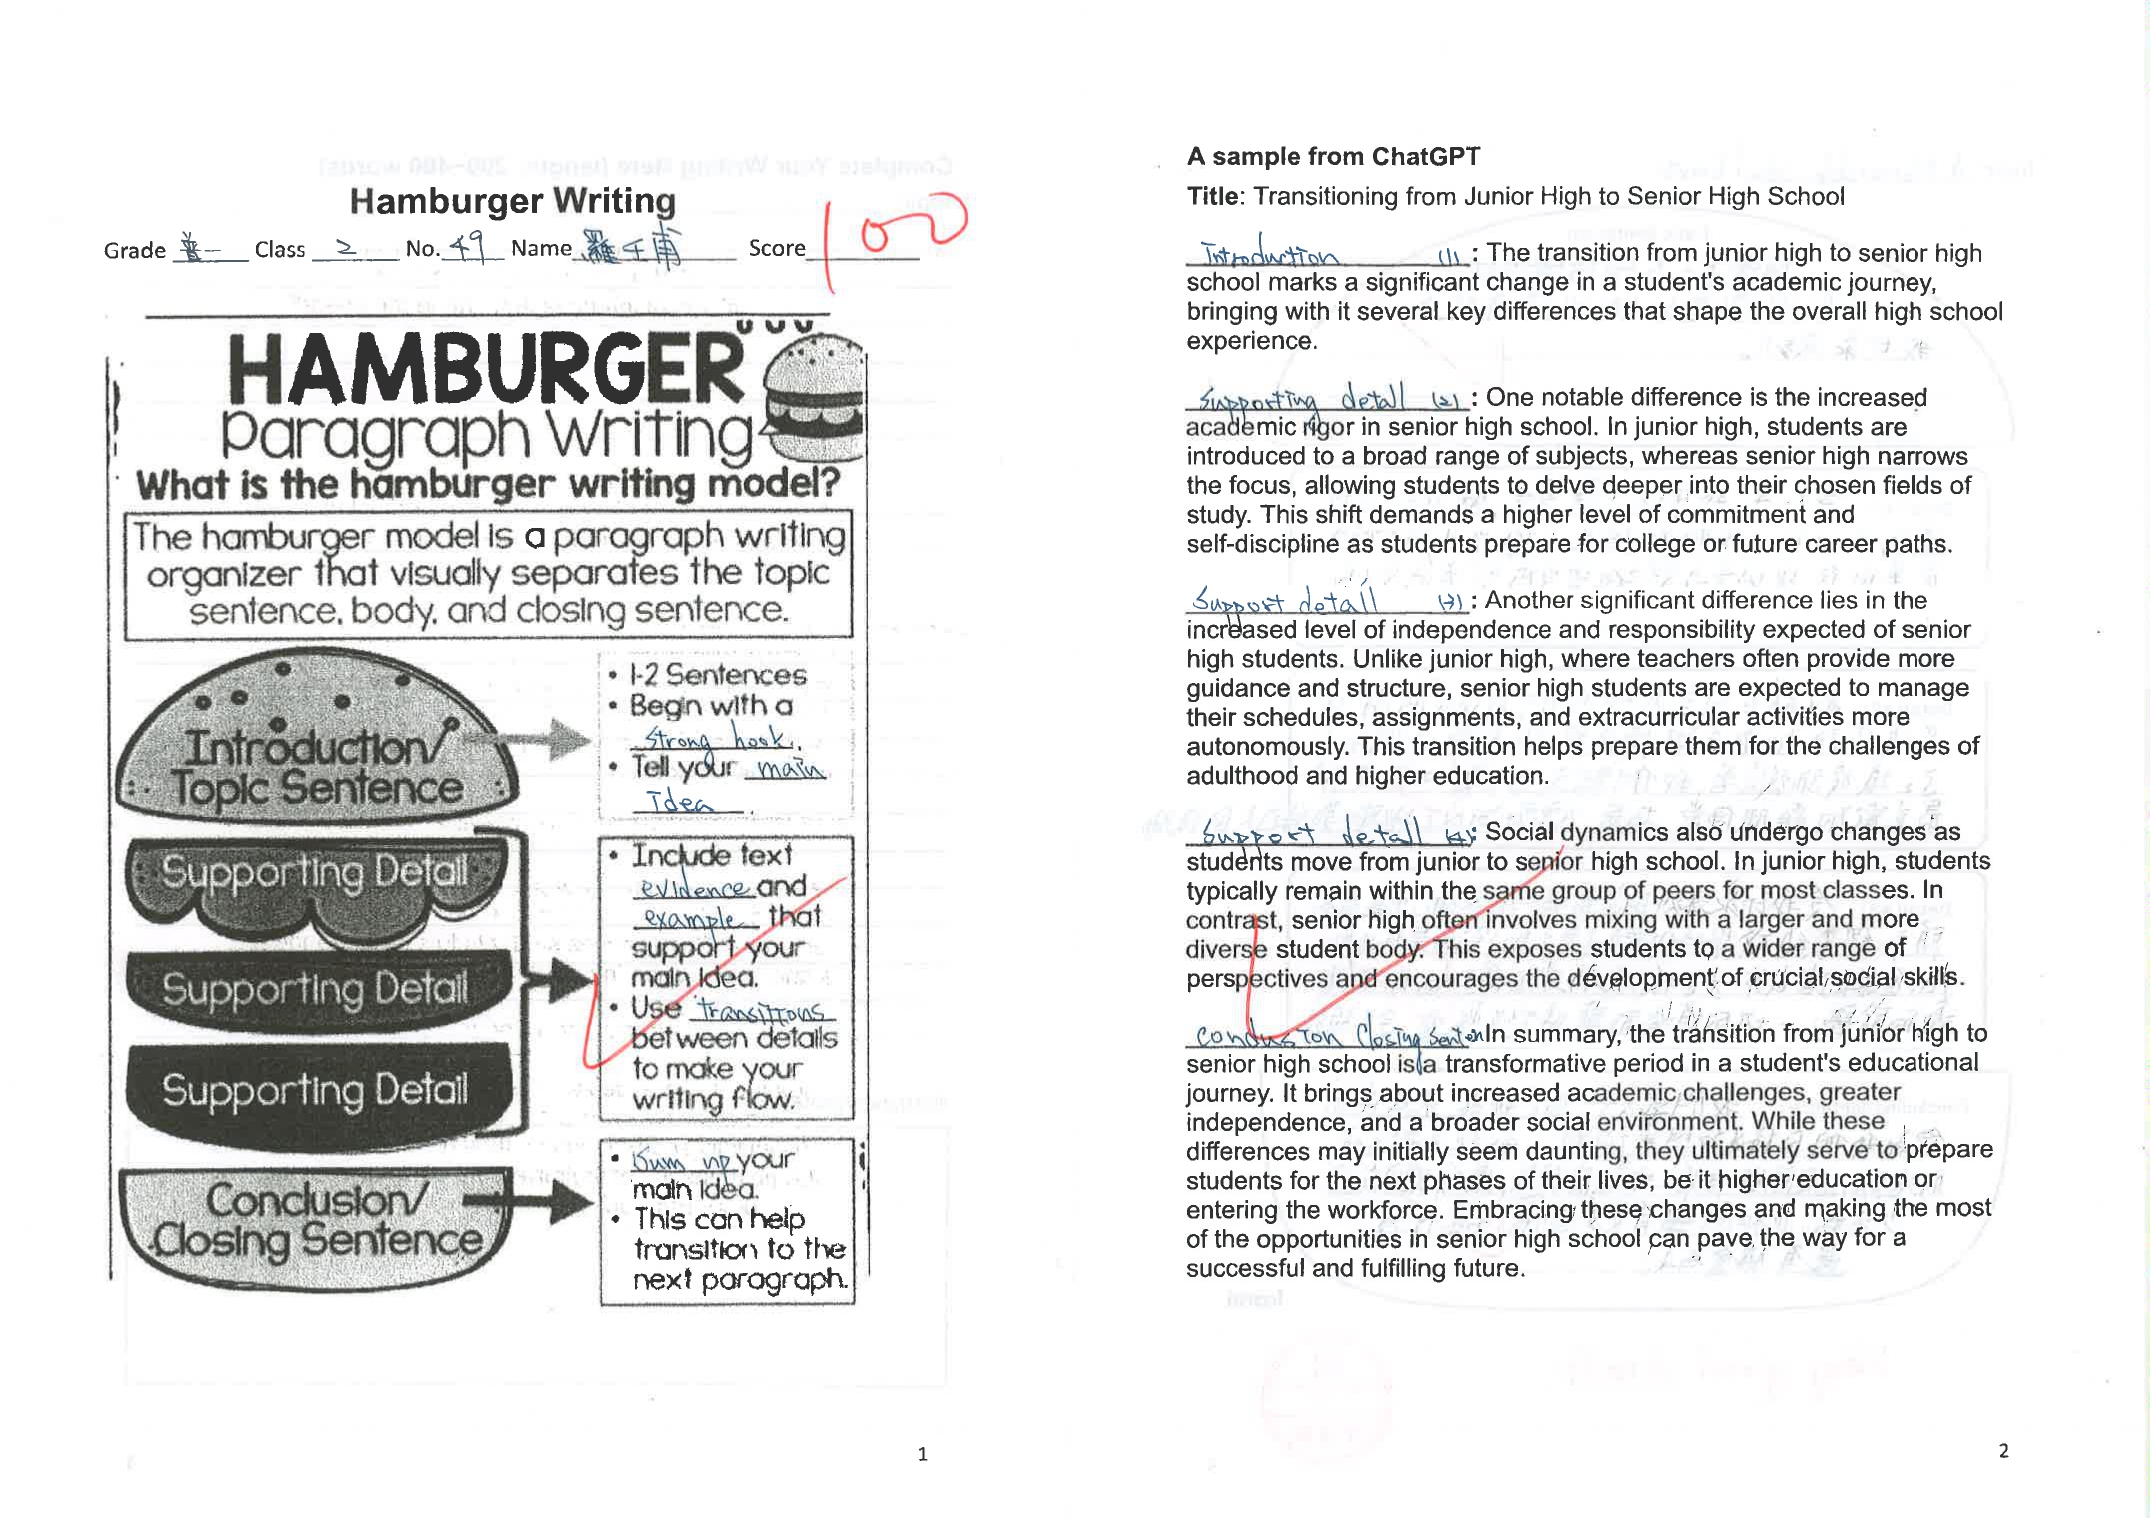 Hamburger Writing
Grade 普一 Class 2 No. 49 Name 羅壬甫 Score 100
HAMBURGER
Paragraph Writing
What is the hamburger writing model?
The hamburger model is a paragraph writing
organizer that visually separates the topic
sentence, body, and closing sentence.
Introduction/
Topic Sentence
• 1-2 Sentences
• Begin with a
strong hook.
• Tell your main
idea.
Supporting Detail
Supporting Detail
Supporting Detail
• Include text
evidence and
example that
support your
main idea.
• Use transitions
between details
to make your
writing flow.
Conclusion/
Closing Sentence
• Sum up your
main idea.
• This can help
transition to the
next paragraph.
1
A sample from ChatGPT
Title: Transitioning from Junior High to Senior High School
Introduction (1): The transition from junior high to senior high
school marks a significant change in a student's academic journey,
bringing with it several key differences that shape the overall high school
experience.
Supporting detail (2): One notable difference is the increased
academic rigor in senior high school. In junior high, students are
introduced to a broad range of subjects, whereas senior high narrows
the focus, allowing students to delve deeper into their chosen fields of
study. This shift demands a higher level of commitment and
self-discipline as students prepare for college or future career paths.
Support detail (3): Another significant difference lies in the
increased level of independence and responsibility expected of senior
high students. Unlike junior high, where teachers often provide more
guidance and structure, senior high students are expected to manage
their schedules, assignments, and extracurricular activities more
autonomously. This transition helps prepare them for the challenges of
adulthood and higher education.
Support detail (4): Social dynamics also undergo changes as
students move from junior to senior high school. In junior high, students
typically remain within the same group of peers for most classes. In
contrast, senior high often involves mixing with a larger and more
diverse student body. This exposes students to a wider range of
perspectives and encourages the development of crucial social skills.
Conclusion Closing Senten In summary, the transition from junior high to
senior high school is a transformative period in a student's educational
journey. It brings about increased academic challenges, greater
independence, and a broader social environment. While these
differences may initially seem daunting, they ultimately serve to prepare
students for the next phases of their lives, be it higher education or
entering the workforce. Embracing these changes and making the most
of the opportunities in senior high school can pave the way for a
successful and fulfilling future.
2